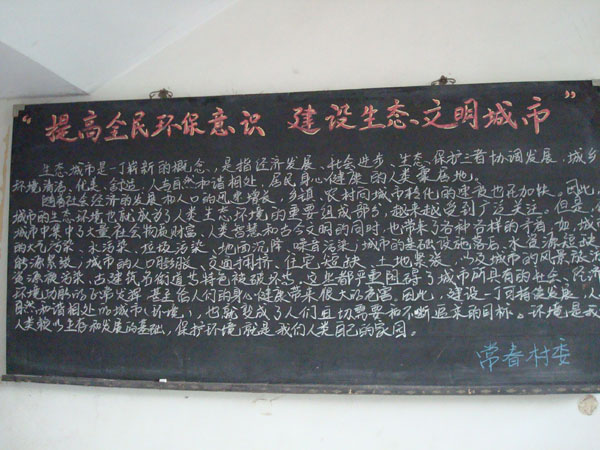 “提高全民环保意识 建设生态文明城市”
生态城市是一个崭新的概念，是指经济发展、社会进步、生态保护三者协调发展，城乡
环境清洁、优美、舒适，人与自然和谐相处，居民身心健康的人类聚居地。
随着社会经济的发展和人口的迅速增长，乡镇、农村向城市转化的建设也在加快。因此，
城市的生态环境也就成了人类生态环境的重要组成部分，越来越受到广泛关注。但是，
城市中集中了大量社会物质财富、人类智慧和古今文明的同时，也带来了各种各样的矛盾，如城市
的大气污染、水污染、垃圾污染、地面沉降、噪音污染；城市的基础设施落后、水资源短缺
能源紧张；城市的人口膨胀、交通拥挤、住宅短缺、土地紧张，以及城市的风景旅游
资源被污染、古建筑名街道与特色被破坏等，这些都严重阻碍了城市所具有的社会、经济
环境功能的正常发挥，甚至给人们的身心健康带来很大的危害。因此，建设一个可持续发展、人
自然和谐相处的城市（环境），也就成了人们日切需要和不断追求的目标。环境是我
人类赖以生存和发展的基础，保护环境就是我们人类自己的家园。
常春村委